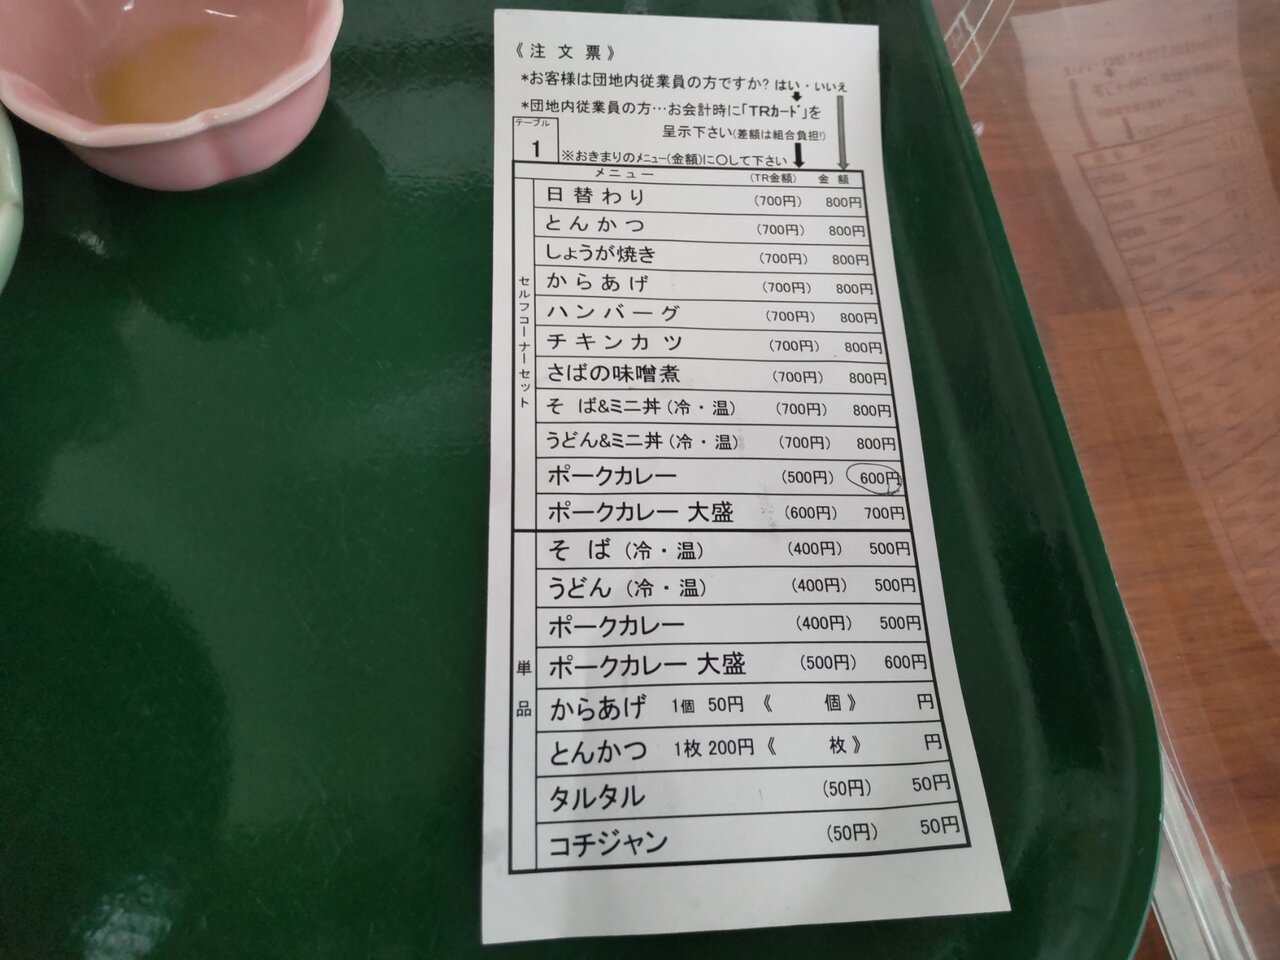 《注文票》
*お客様は団地内従業員の方ですか? はい・いいえ
*団地内従業員の方…お会計時に「TRカード」を
呈示下さい(差額は組合負担!)
テーブル
1
※おきまりのメニュー(金額)に○して下さい
メニュー (TR金額) 金額
セルフコーナーセット
日替わり (700円) 800円
とんかつ (700円) 800円
しょうが焼き (700円) 800円
からあげ (700円) 800円
ハンバーグ (700円) 800円
チキンカツ (700円) 800円
さばの味噌煮 (700円) 800円
そば&ミニ丼(冷・温) (700円) 800円
うどん&ミニ丼(冷・温) (700円) 800円
ポークカレー (500円) 600円
ポークカレー 大盛 (600円) 700円
単品
そば(冷・温) (400円) 500円
うどん(冷・温) (400円) 500円
ポークカレー (400円) 500円
ポークカレー 大盛 (500円) 600円
からあげ 1個 50円 《 個》 円
とんかつ 1枚 200円 《 枚》 円
タルタル (50円) 50円
コチジャン (50円) 50円